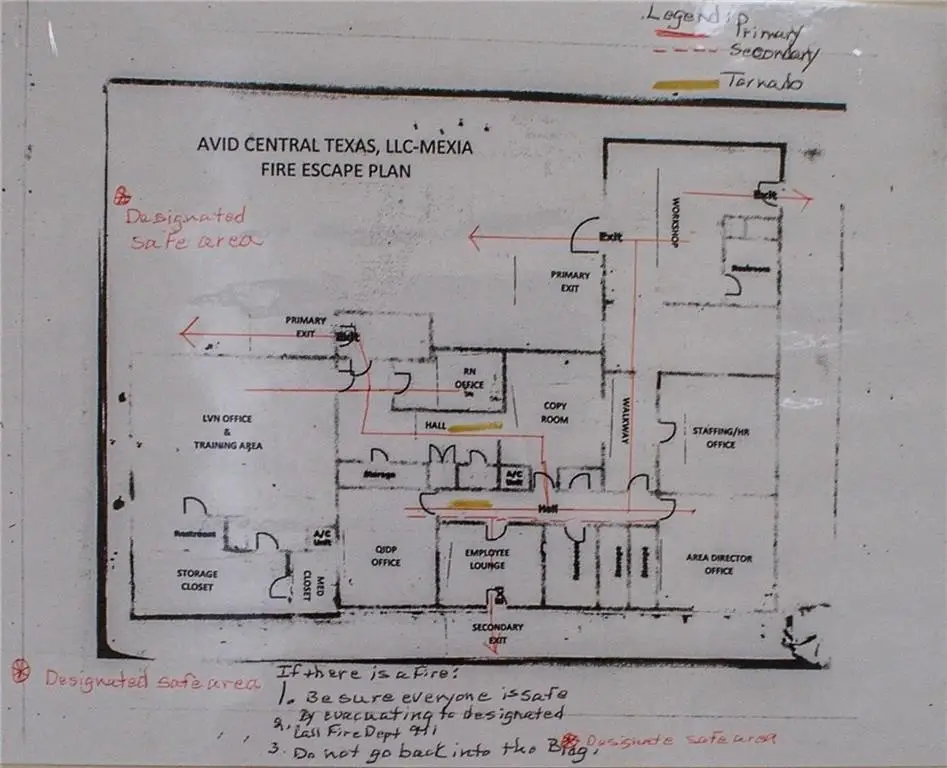 Legend:
Primary
Secondary
Tornado
AVID CENTRAL TEXAS, LLC-MEXIA
FIRE ESCAPE PLAN
Designated
safe area
Exit
WORKSHOP
Exit
PRIMARY
EXIT
Restroom
PRIMARY
EXIT
Exit
RN
OFFICE
COPY
ROOM
WALKWAY
LVN OFFICE
&
TRAINING AREA
HALL
STAFFING/HR
OFFICE
Storage
A/C
Unit
Hall
Restroom
A/C
Unit
QIDP
OFFICE
EMPLOYEE
LOUNGE
Restroom
AREA DIRECTOR
OFFICE
STORAGE
CLOSET
MED
CLOSET
SECONDARY
EXIT
Designated safe area
If there is a Fire:
1. Be sure everyone is safe
By evacuating to designated
2. Call Fire Dept 911
3. Do not go back into the Bldg.
Designate safe area